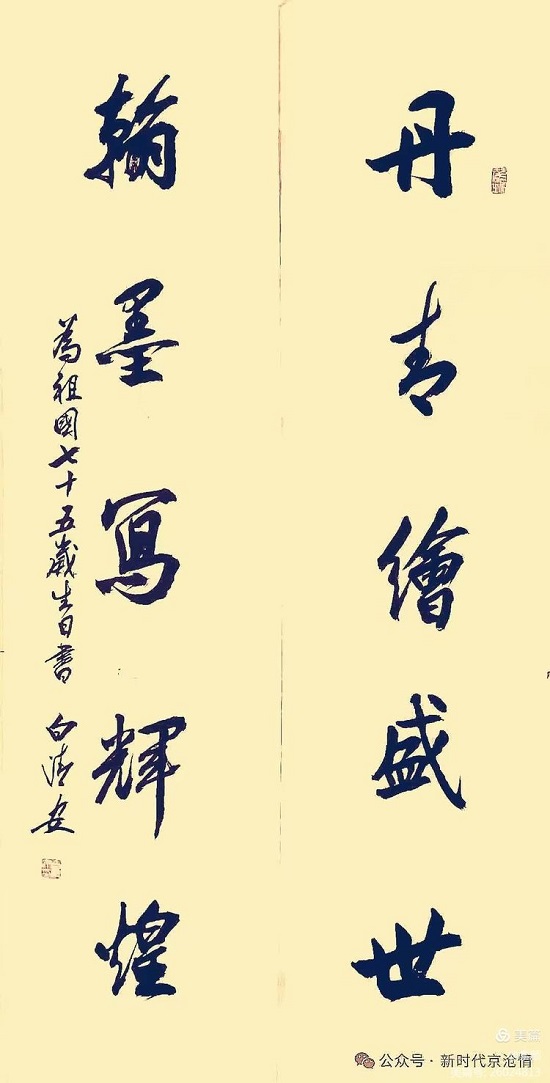 丹青繪盛世
翰墨寫輝煌
為祖國七十五歲生日書 白清安
美篇
公众号·新时代京沧情